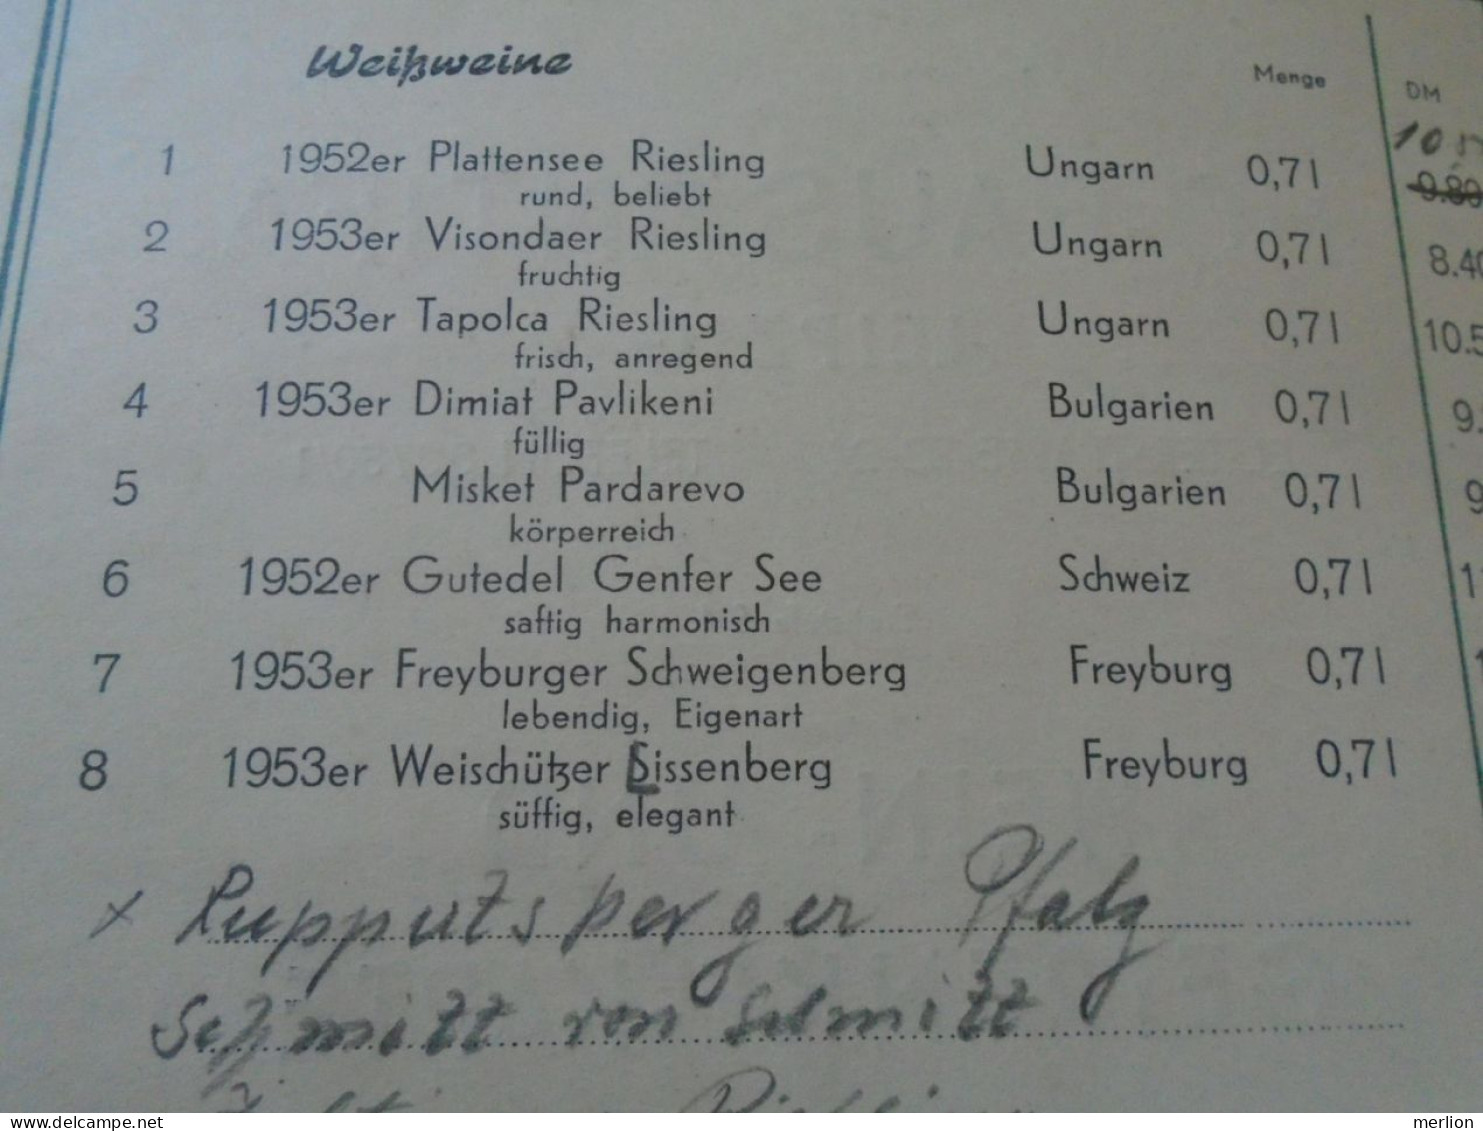 Weißweine
Menge
DM
10
1 1952er Plattensee Riesling Ungarn 0,7 l 9.80
rund, beliebt
2 1953er Visondaer Riesling Ungarn 0,7 l 8.40
fruchtig
3 1953er Tapolca Riesling Ungarn 0,7 l 10.5
frisch, anregend
4 1953er Dimiat Pavlikeni Bulgarien 0,7 l 9.
füllig
5 Misket Pardarevo Bulgarien 0,7 l 9
körperreich
6 1952er Gutedel Genfer See Schweiz 0,7 l 1
saftig harmonisch
7 1953er Freyburger Schweigenberg Freyburg 0,7 l 1
lebendig, Eigenart
8 1953er Weischützer Lissenberg Freyburg 0,7 l
süffig, elegant
x Ruppertsberger Pfalz
Schmitt von Schmitt
delcampe.net
merlion